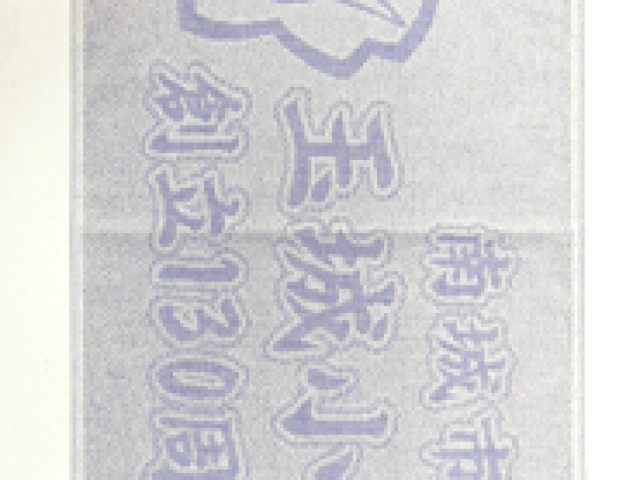 南城市
玉城小
創立130周